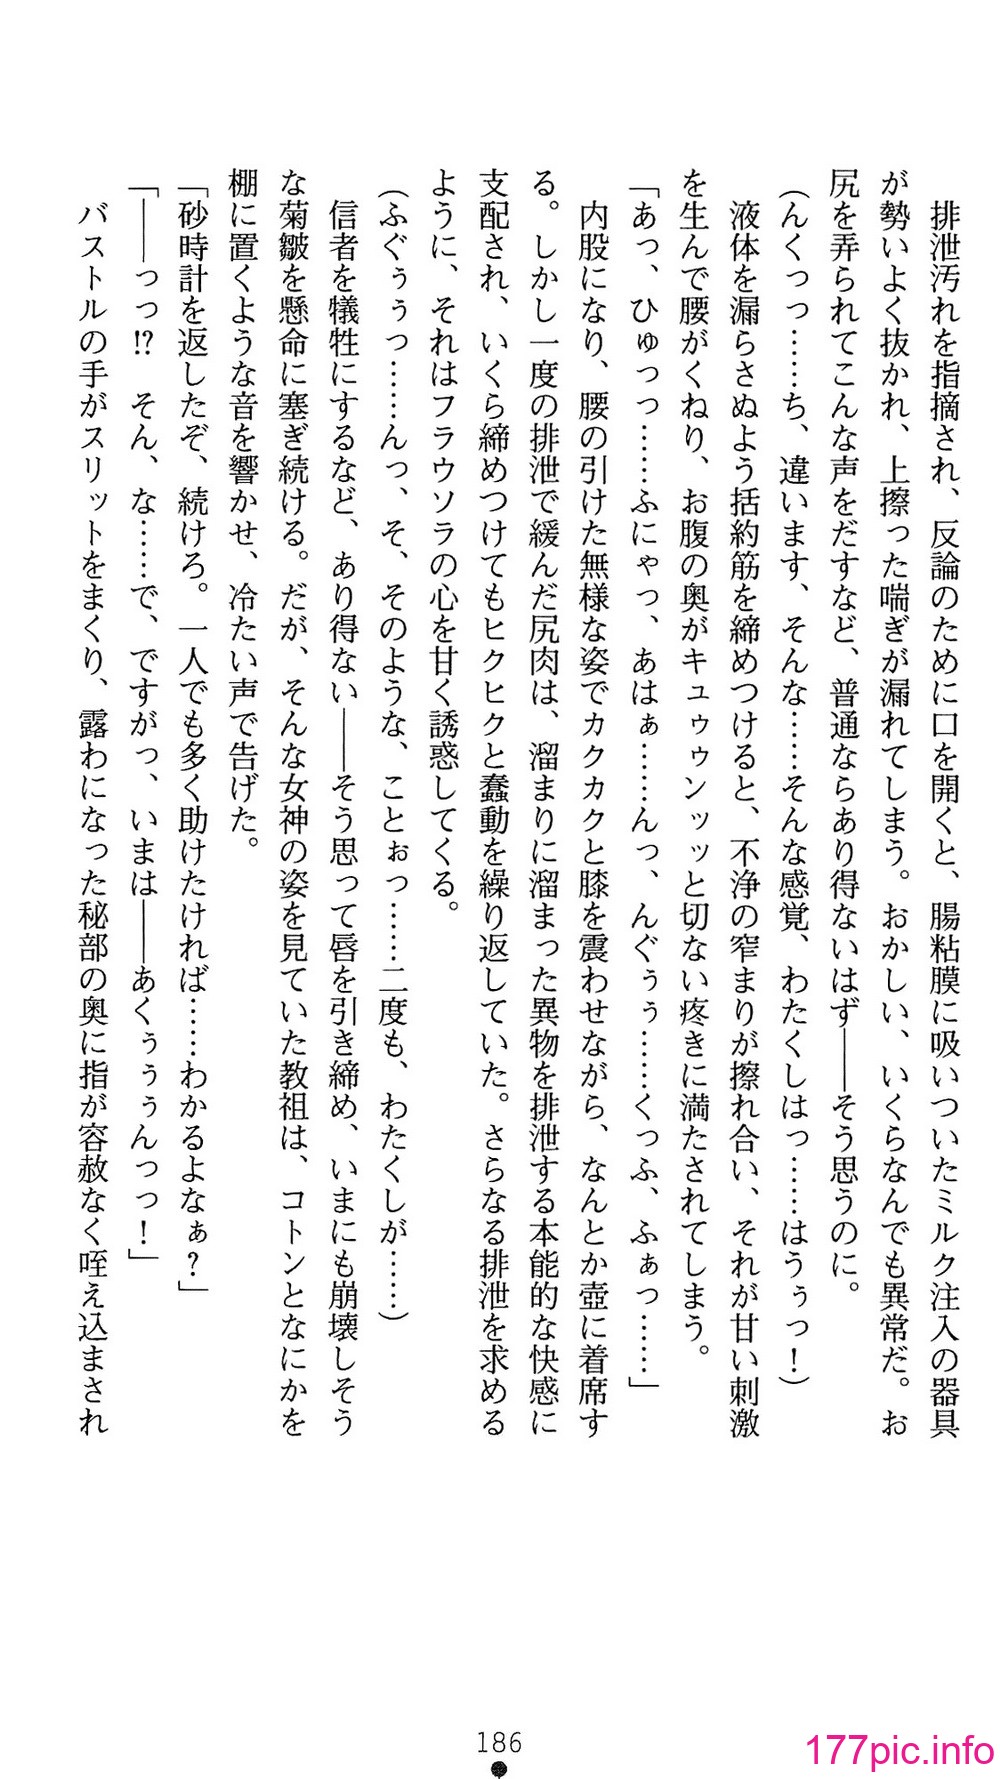 排泄汚れを指摘され、反論のために口を開くと、腸粘膜に吸いついたミルク注入の器具
が勢いよく抜かれ、上擦った喘ぎが漏れてしまう。おかしい、いくらなんでも異常だ。お
尻を弄られてこんな声をだすなど、普通ならあり得ないはず――そう思うのに。
(んくっっ……ち、違います、そんな……そんな感覚、わたくしはっ……はうぅっ！)
液体を漏らさぬよう括約筋を締めつけると、不浄の窄まりが擦れ合い、それが甘い刺激
を生んで腰がくねり、お腹の奥がキュゥゥンッッと切ない疼きに満たされてしまう。
「あっ、ひゅっっ……ふにゃっ、あはぁ……んっ、んぐぅぅ……くっふ、ふぁっ……」
内股になり、腰の引けた無様な姿でカクカクと膝を震わせながら、なんとか壺に着席す
る。しかし一度の排泄で緩んだ尻肉は、溜まりに溜まった異物を排泄する本能的な快感に
支配され、いくら締めつけてもヒクヒクと蠢動を繰り返していた。さらなる排泄を求める
ように、それはフラウソラの心を甘く誘惑してくる。
(ふぐぅぅっ……んっ、そ、そのような、ことぉっ……二度も、わたくしが……)
信者を犠牲にするなど、あり得ない――そう思って唇を引き締め、いまにも崩壊しそう
な菊皺を懸命に塞ぎ続ける。だが、そんな女神の姿を見ていた教祖は、コトンとなにかを
棚に置くような音を響かせ、冷たい声で告げた。
「砂時計を返したぞ、続けろ。一人でも多く助けたければ……わかるよなぁ？」
「――っっ!?　そん、な……で、ですがっ、いまは――あくぅぅぅんっっ！」
バストルの手がスリットをまくり、露わになった秘部の奥に指が容赦なく咥え込まされ
186
177pic.info